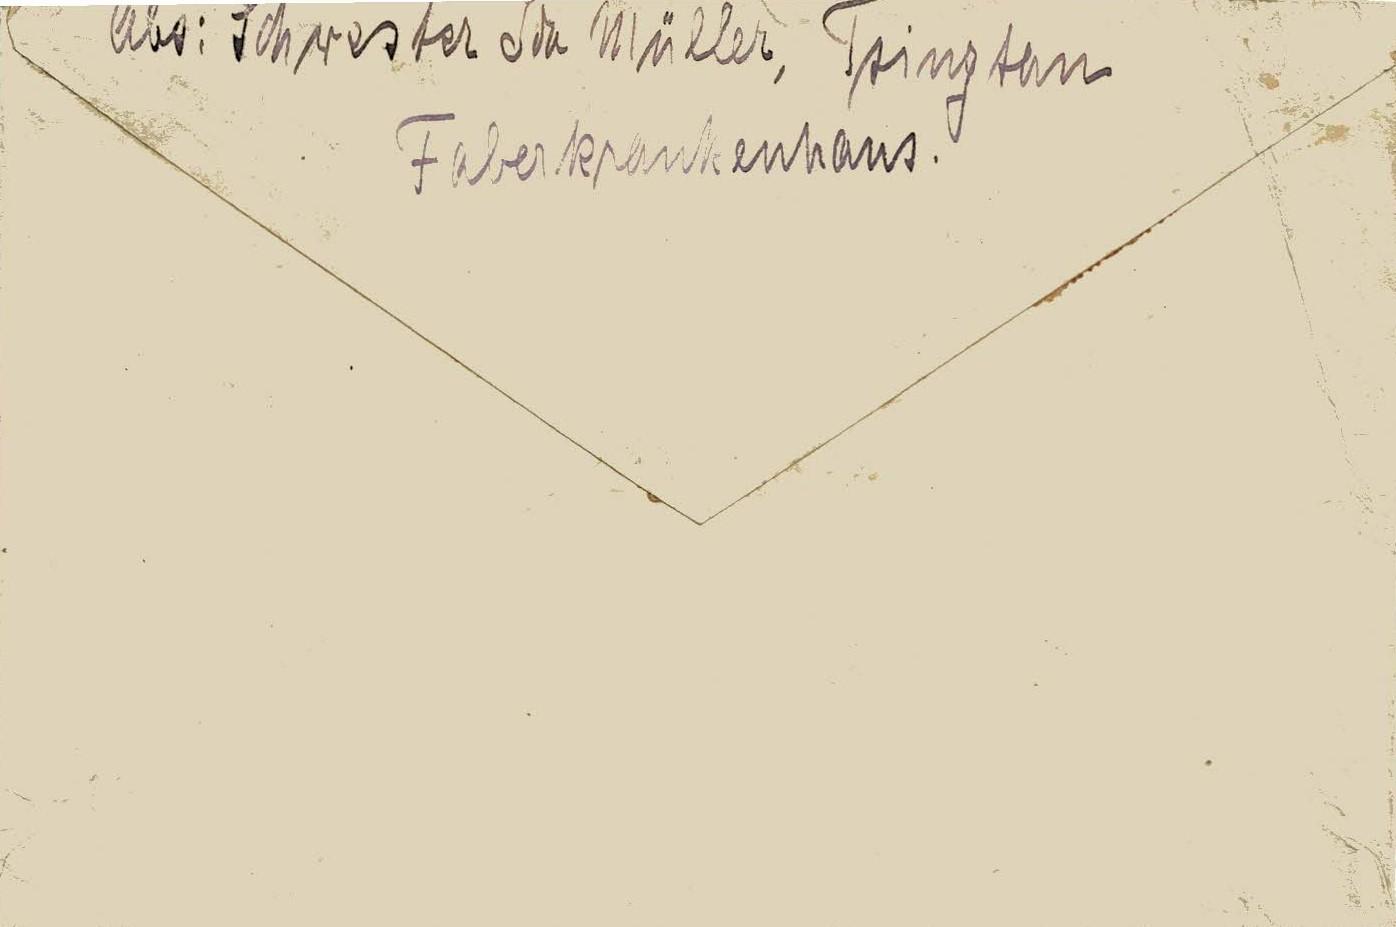 Abs: Schwester Ida Müller, Tsingtau
Faberkrankenhaus.